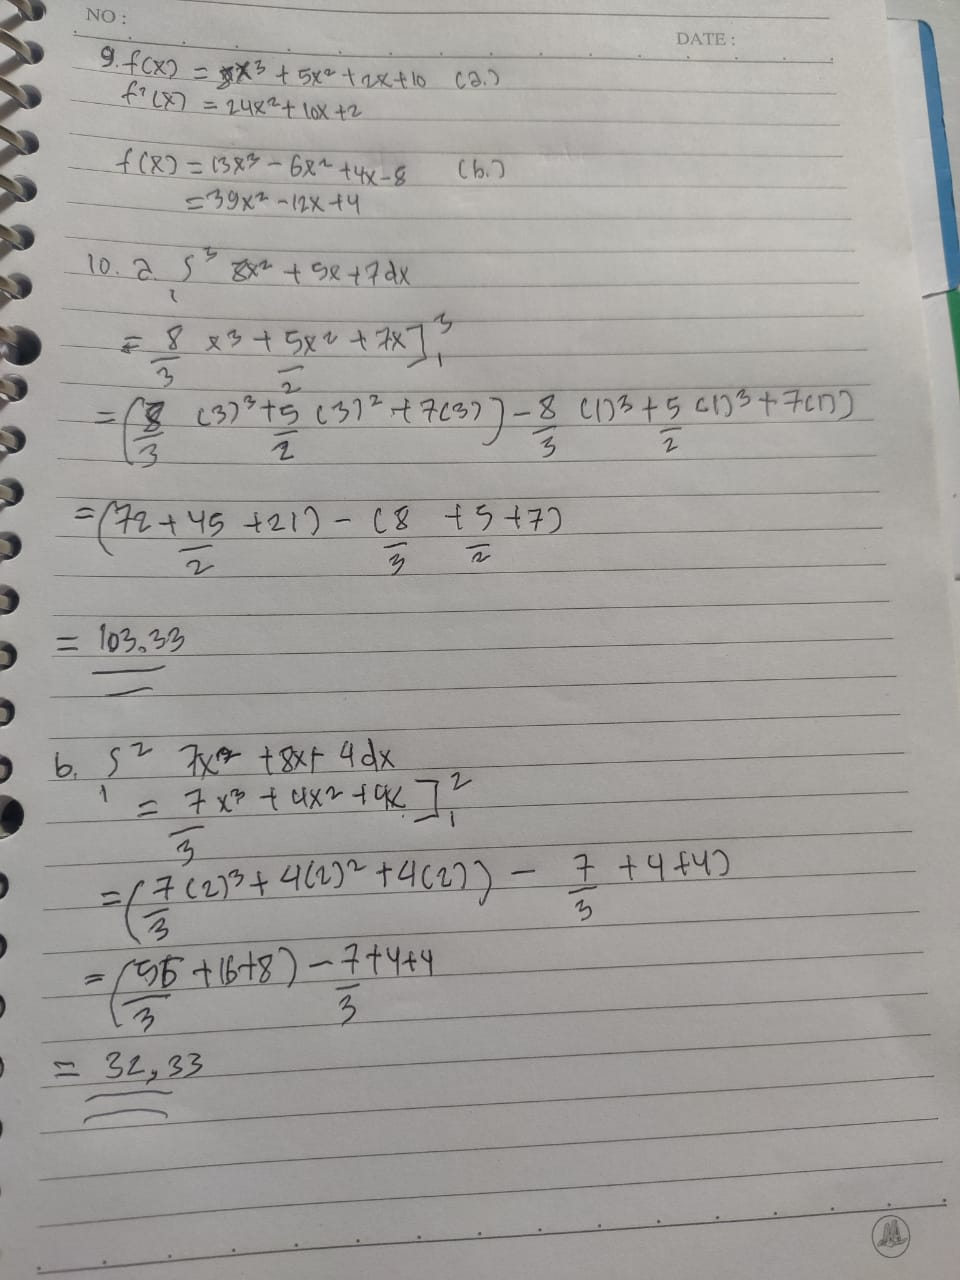 NO :
DATE :
9. f(x) = 8x³ + 5x² + 2x + 10 (a.)
f'(x) = 24x² + 10x + 2
f(x) = 13x³ - 6x² + 4x - 8 (b.)
= 39x² - 12x + 4
10. a. ∫₁³ 8x² + 5x + 7 dx
= 8/3 x³ + 5x²/2 + 7x]₁³
= (8/3 (3)³ + 5/2 (3)² + 7(3)) - 8/3 (1)³ + 5/2 (1)³ + 7(1))
= (72 + 45/2 + 21) - (8/3 + 5/2 + 7)
= 103.33
b. ∫₁² 7x² + 8x + 4 dx
= 7/3 x³ + 4x² + 4x]₁²
= (7/3 (2)³ + 4(2)² + 4(2)) - 7/3 + 4 + 4)
= (56/3 + 16 + 8) - 7/3 + 4 + 4
= 32,33